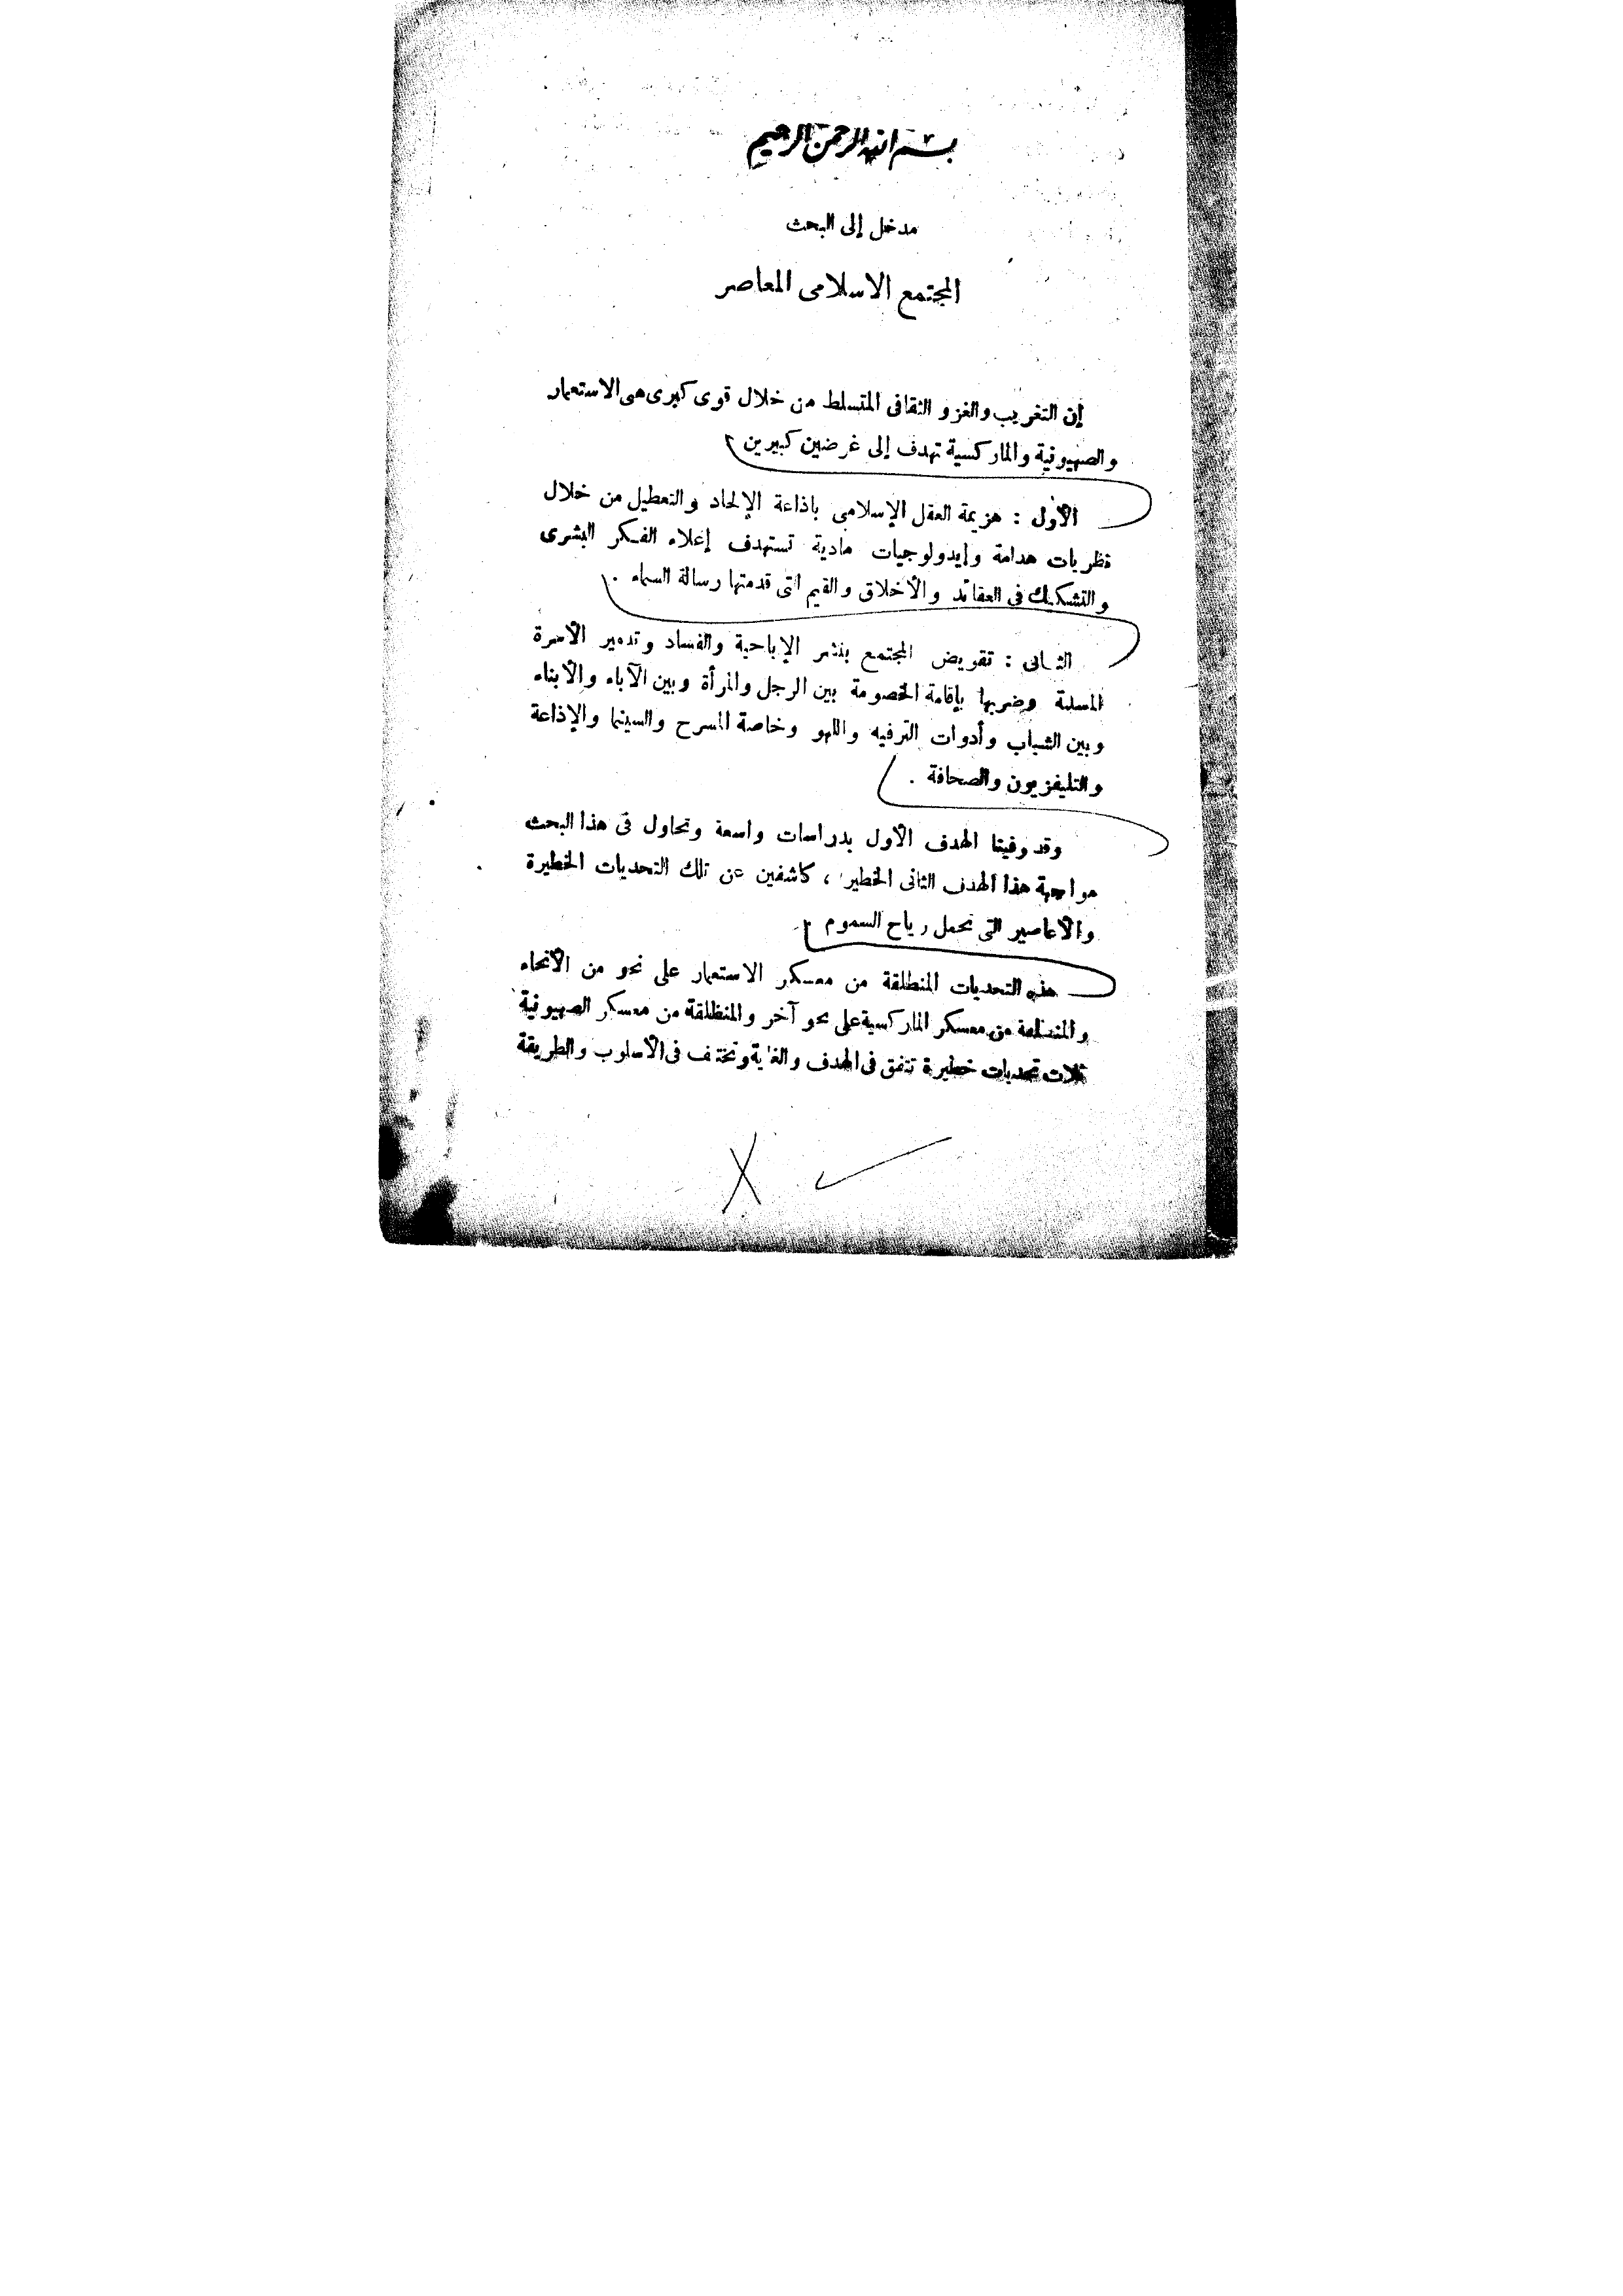 بسم الله الرحمن الرحيم
مدخل إلى البحث
المجتمع الاسلامى المعاصر
إن التغريب والغزو الثقافى المتسلط من خلال قوى كبرى هى الاستعمار
والصهيونية والماركسية تهدف إلى غرضين كبيرين
الأول : هزيمة العقل الإسلامى باذاعة الإلحاد والتعطيل من خلال
نظريات هدامة وإيدولوجيات مادية تستهدف إعلاء الفكر البشرى
والتشكيك فى العقائد والأخلاق والقيم التى قدمتها رسالة السماء .
الثانى : تقويض المجتمع بنشر الإباحية والفساد وتدمير الأسرة
المسلمة وضربها بإقامة الخصومة بين الرجل والمرأة وبين الآباء والأبناء
وبين الشباب وأدوات الترفيه واللهو وخاصة المسرح والسينما والإذاعة
والتليفزيون والصحافة .
وقد وفينا الهدف الأول بدراسات واسعة ونحاول فى هذا البحث
مواجهة هذا الهدف الثانى الخطير ، كاشفين عن تلك التحديات الخطيرة
والأعاصير التى تحمل رياح السموم .
هذه التحديات المنطلقة من معسكر الاستعمار على نحو من الأنحاء
والمنطلقة من معسكر الماركسية على نحو آخر والمنطلقة من معسكر الصهيونية
ثلاث تحديات خطيرة تتفق فى الهدف والغاية وتختلف فى الأسلوب والطريقة